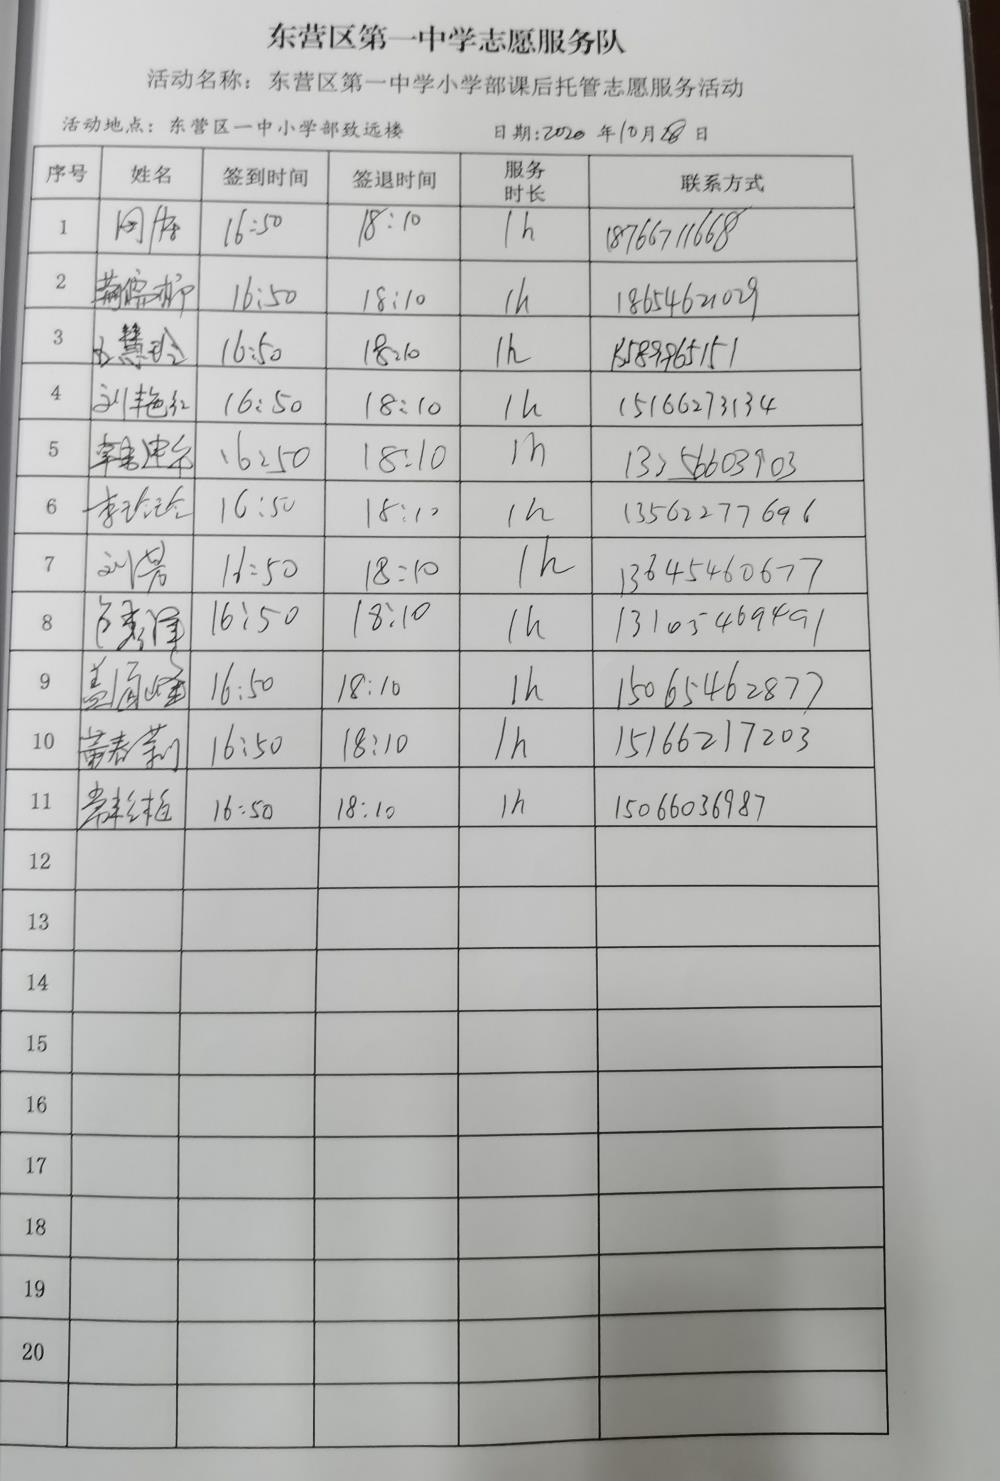 东营区第一中学志愿服务队
活动名称：东营区第一中学小学部课后托管志愿服务活动
活动地点：东营区一中小学部致远楼 日期:2020 年10月28日
序号 姓名 签到时间 签退时间 服务时长 联系方式
1 16:50 18:10 1h 18766711668
2 16:50 18:10 1h 18654621029
3 16:50 18:10 1h
4 刘艳红 16:50 18:10 1h 15166273134
5 16:50 18:10 1h 13256603903
6 李玲玲 16:50 18:10 1h 13562277696
7 刘芳 16:50 18:10 1h 13645460677
8 16:50 18:10 1h
9 16:50 18:10 1h 15065462877
10 16:50 18:10 1h 15166217203
11 16:50 18:10 1h 15066036987
12
13
14
15
16
17
18
19
20